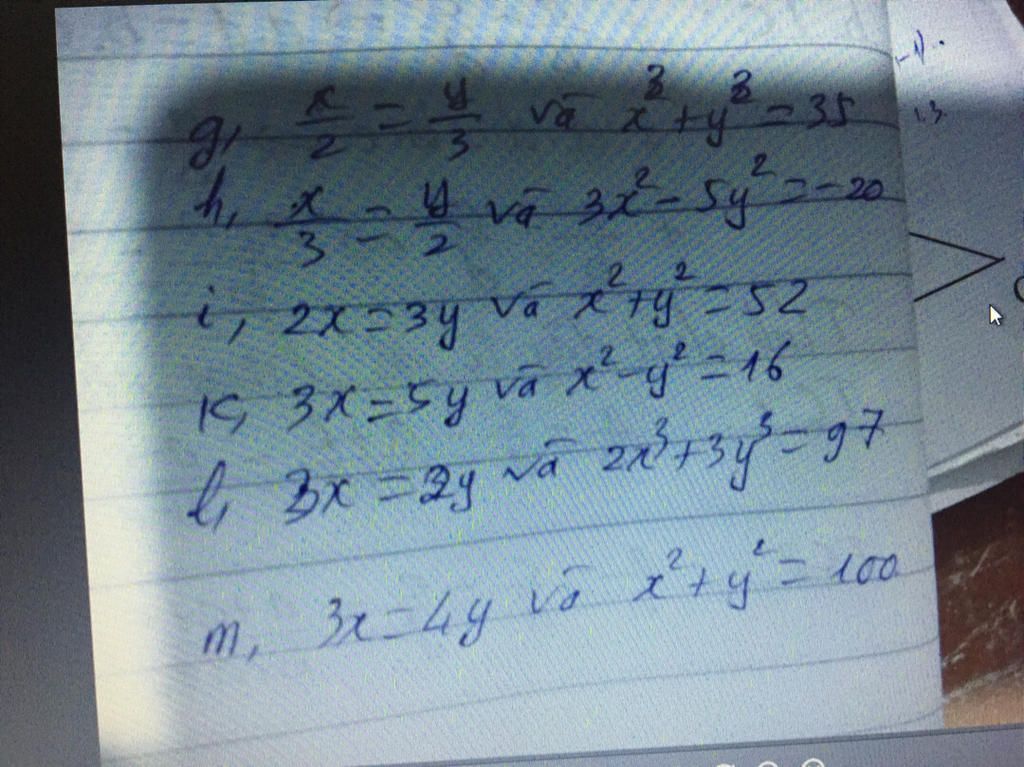 g, x/2 = y/3 và x³ + y³ = 35
h, x/3 = y/2 và 3x² - 5y² = -20
i, 2x = 3y và x² + y² = 52
k, 3x = 5y và x² - y² = 16
l, 3x = 2y và 2x³ + 3y³ = 97
m, 3x = 4y và x² + y² = 100